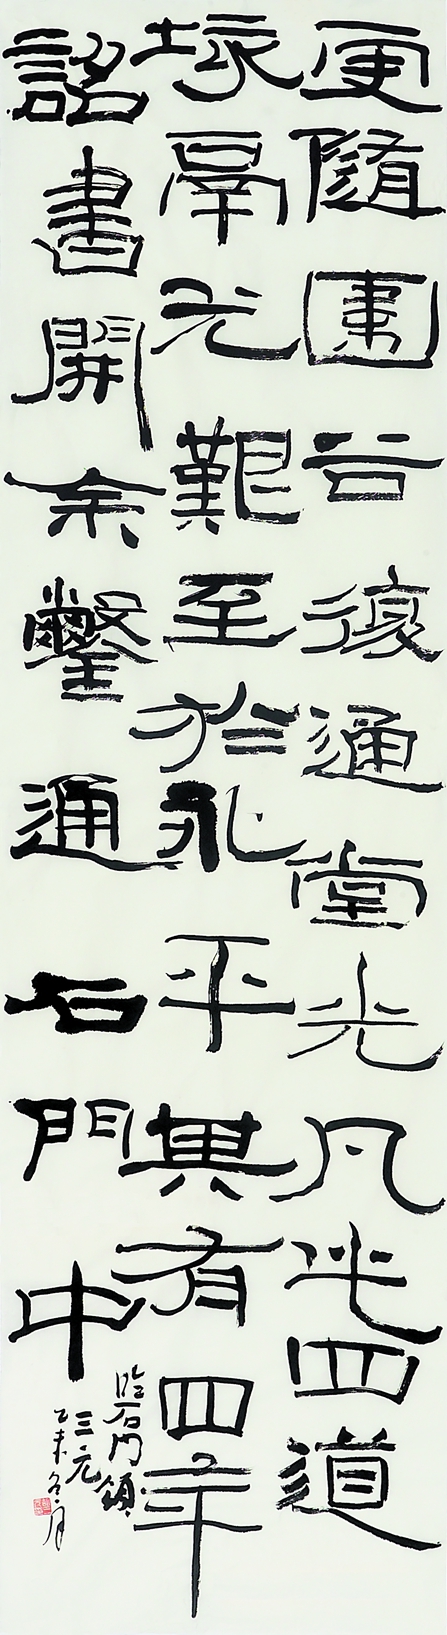 更隨圍谷復通堂光凡此四道
垓鬲尤艱至於永平其有四年
詔書開余鑿通石門中
臨石門頌
三元
乙未冬月